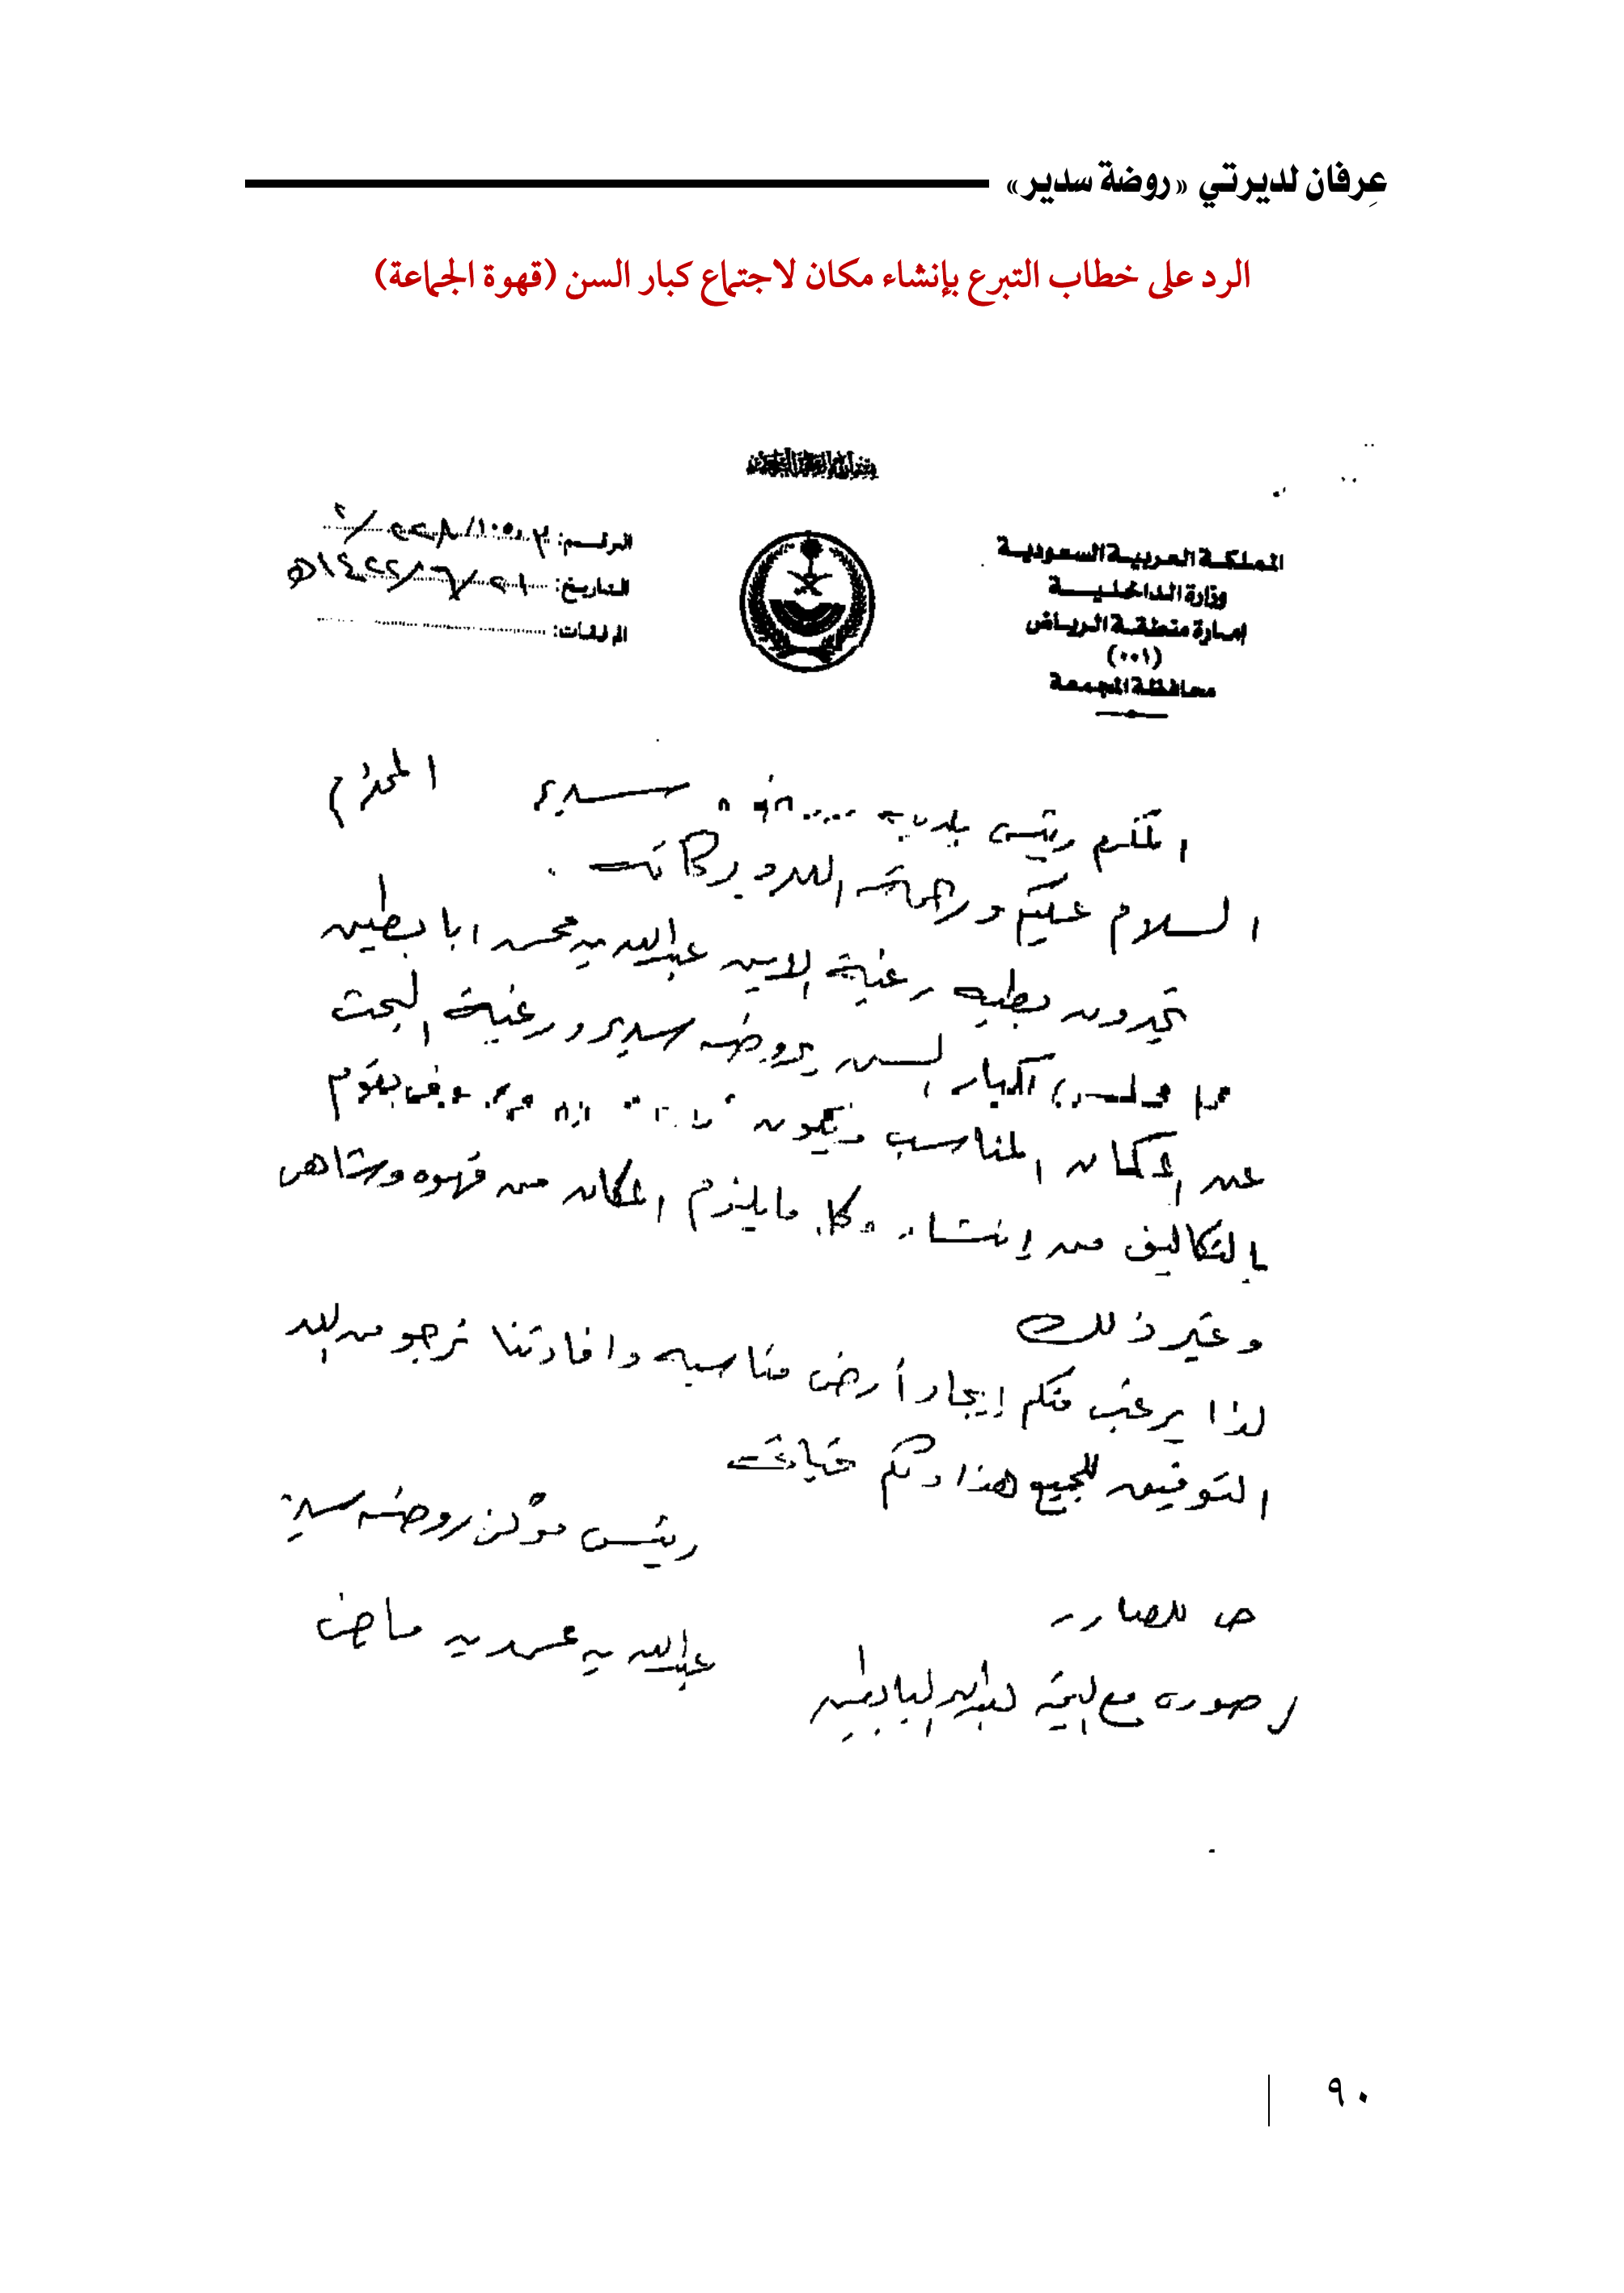 عِرفان لديرتي «روضة سدير»
الرد على خطاب التبرع بإنشاء مكان لاجتماع كبار السن (قهوة الجماعة)
بسم الله الرحمن الرحيم
المملكة العربية السعودية
وزارة الداخلية
إمارة منطقة الرياض
(٠٠١)
محافظة المجمعة
الرقم:
التاريخ: ٢١/٦/١٤٢٢هـ
المرفقات:
المكرم رئيس بلدية سدير المحترم
السلام عليكم ورحمة الله وبركاته .
تجدون بطيه رغبة الابن عبدالله بن محسن ابابطين
لكبار السن بروضه سدير ورغبة البحث
عن المكان المناسب ويكون وفي يقوم
بالتكاليف من إنشاء وكل ما يلزم المكان من قهوه وشاهي
وغير ذلك
لذا يرغب منكم إيجاد أرض مناسبه وافادتنا نرجو من الله
التوفيق للجميع هذا ولكم تحياتي
رئيس مركز روضه سدير
ص للصادر
عبدالله بن ماضي
صوره مع
٩٠